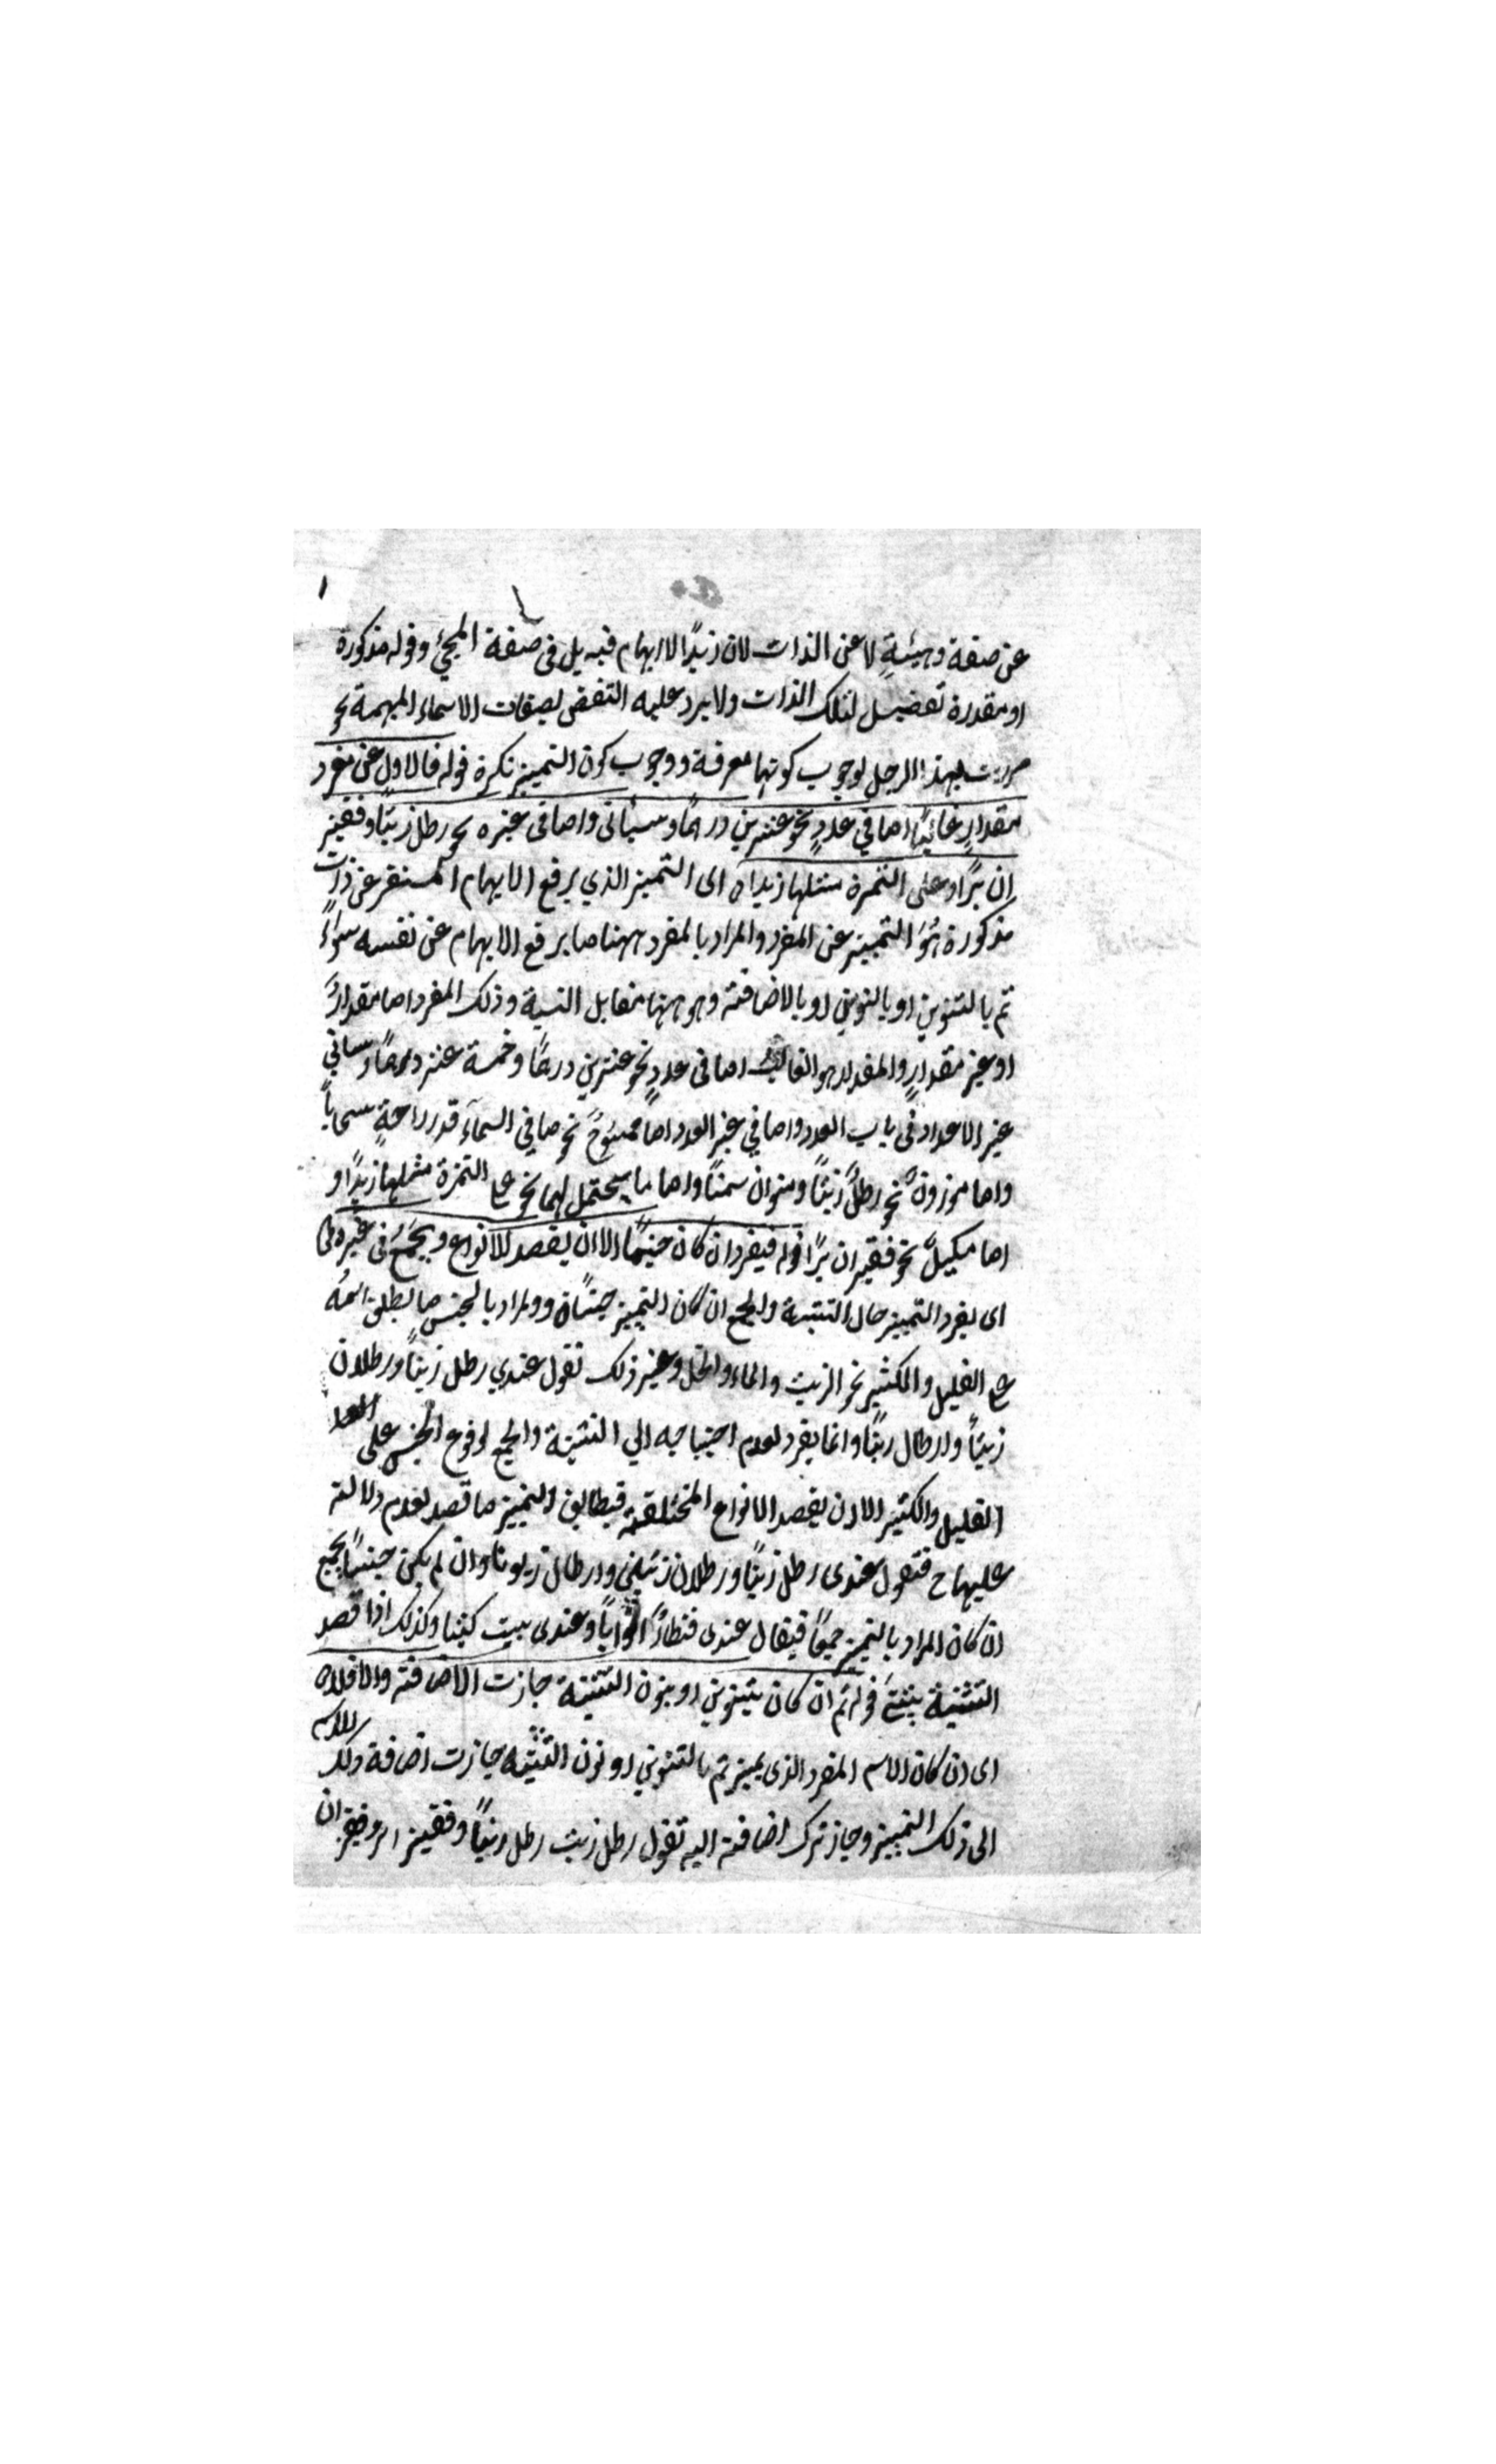 عن صفة وهيئةٍ لا عن الذات لان زيدًا لا ابهام فيه بل فى صفة المجئ وقوله مذكورة
او مقدرة تفصيل لتلك الذات ولا يرد عليه النقض بصفات الاسماء المبهمة نحو
مررت بهذا الرجل لوجوب كونها معرفة ووجوب كون التميز نكرة قوله فالاول عن مفرد
مقدارٍ غالبًا اما في عددٍ نحو عشرين درهمًا وسيأتى واما فى غيره نحو رطل زيتًا وقفيز
ان برًا وعلى التمرة مثلها زبدا اى التميز الذي يرفع الابهام المستقر عن ذات
مذكورة هُوَ التميز عن المفرد والمراد بالمفرد ههنا ما يرفع الابهام عن نفسه سواءً
تم بالتنوين او بالنون او بالاضافة وهو ههنا مقابل النسبة وذلك المفرد اما مقدارٌ
او غير مقدارٍ والمقدار هو الغالب اما فى عددٍ نحو عشرين درهمًا وخمسة عشر درهمًا وسيأتي
غير الاعداد فى باب العدد واما في غير العدد اما ممسوحٌ نحو ما في السمآء قدر راحةٍ سحاباً
واما موزونٌ نحو رطلٌ زيتًا ومنوان سمنًا واما ما يحتمل لهما نحو على التمرة مثلها زبدًا و
اما مكيلٌ نحو قفيزان برًا قوله فيفرد ان كان جنسًا الا ان يقصد الانواع ويجمع فى غيره
اى يفرد التميز حال التثنية والجمع ان كان التميز جنسًا والمراد بالجنس ما يطلق اسمه
على القليل والكثير نحو الزيت والماء والخل وغير ذلك تقول عندي رطل زيتًا ورطلان
زيتًا وارطال زيتًا وانما يفرد لعدم احتياجه الي التثنية والجمع لوقوع الجنس على
القليل والكثير الا ان يقصد الانواع المختلفة فيطابق التميز ما قصد لعدم دلالته
عليها ح فتقول عندى رطل زيتًا ورطلان زيتين وارطال زيوتا وان لم يكن جنسًا يجمع
ان كان المراد بالتميز جمعًا فيقال عندى قنطارٌ اثوابًا وعندى بيت كتبا وكذلك اذا قصد
التثنية يثنى قوله ثم ان كان بتنوين او بنون التثنية جازت الاضافة والا فلا
اى ان كان الاسم المفرد الذى يميز تم بالتنوين او نون التثنيه جازت اضافة ذلك
الى ذلك التميز وجاز ترك اضافته اليه تقول رطل زيت رطل زيتًا وقفيز